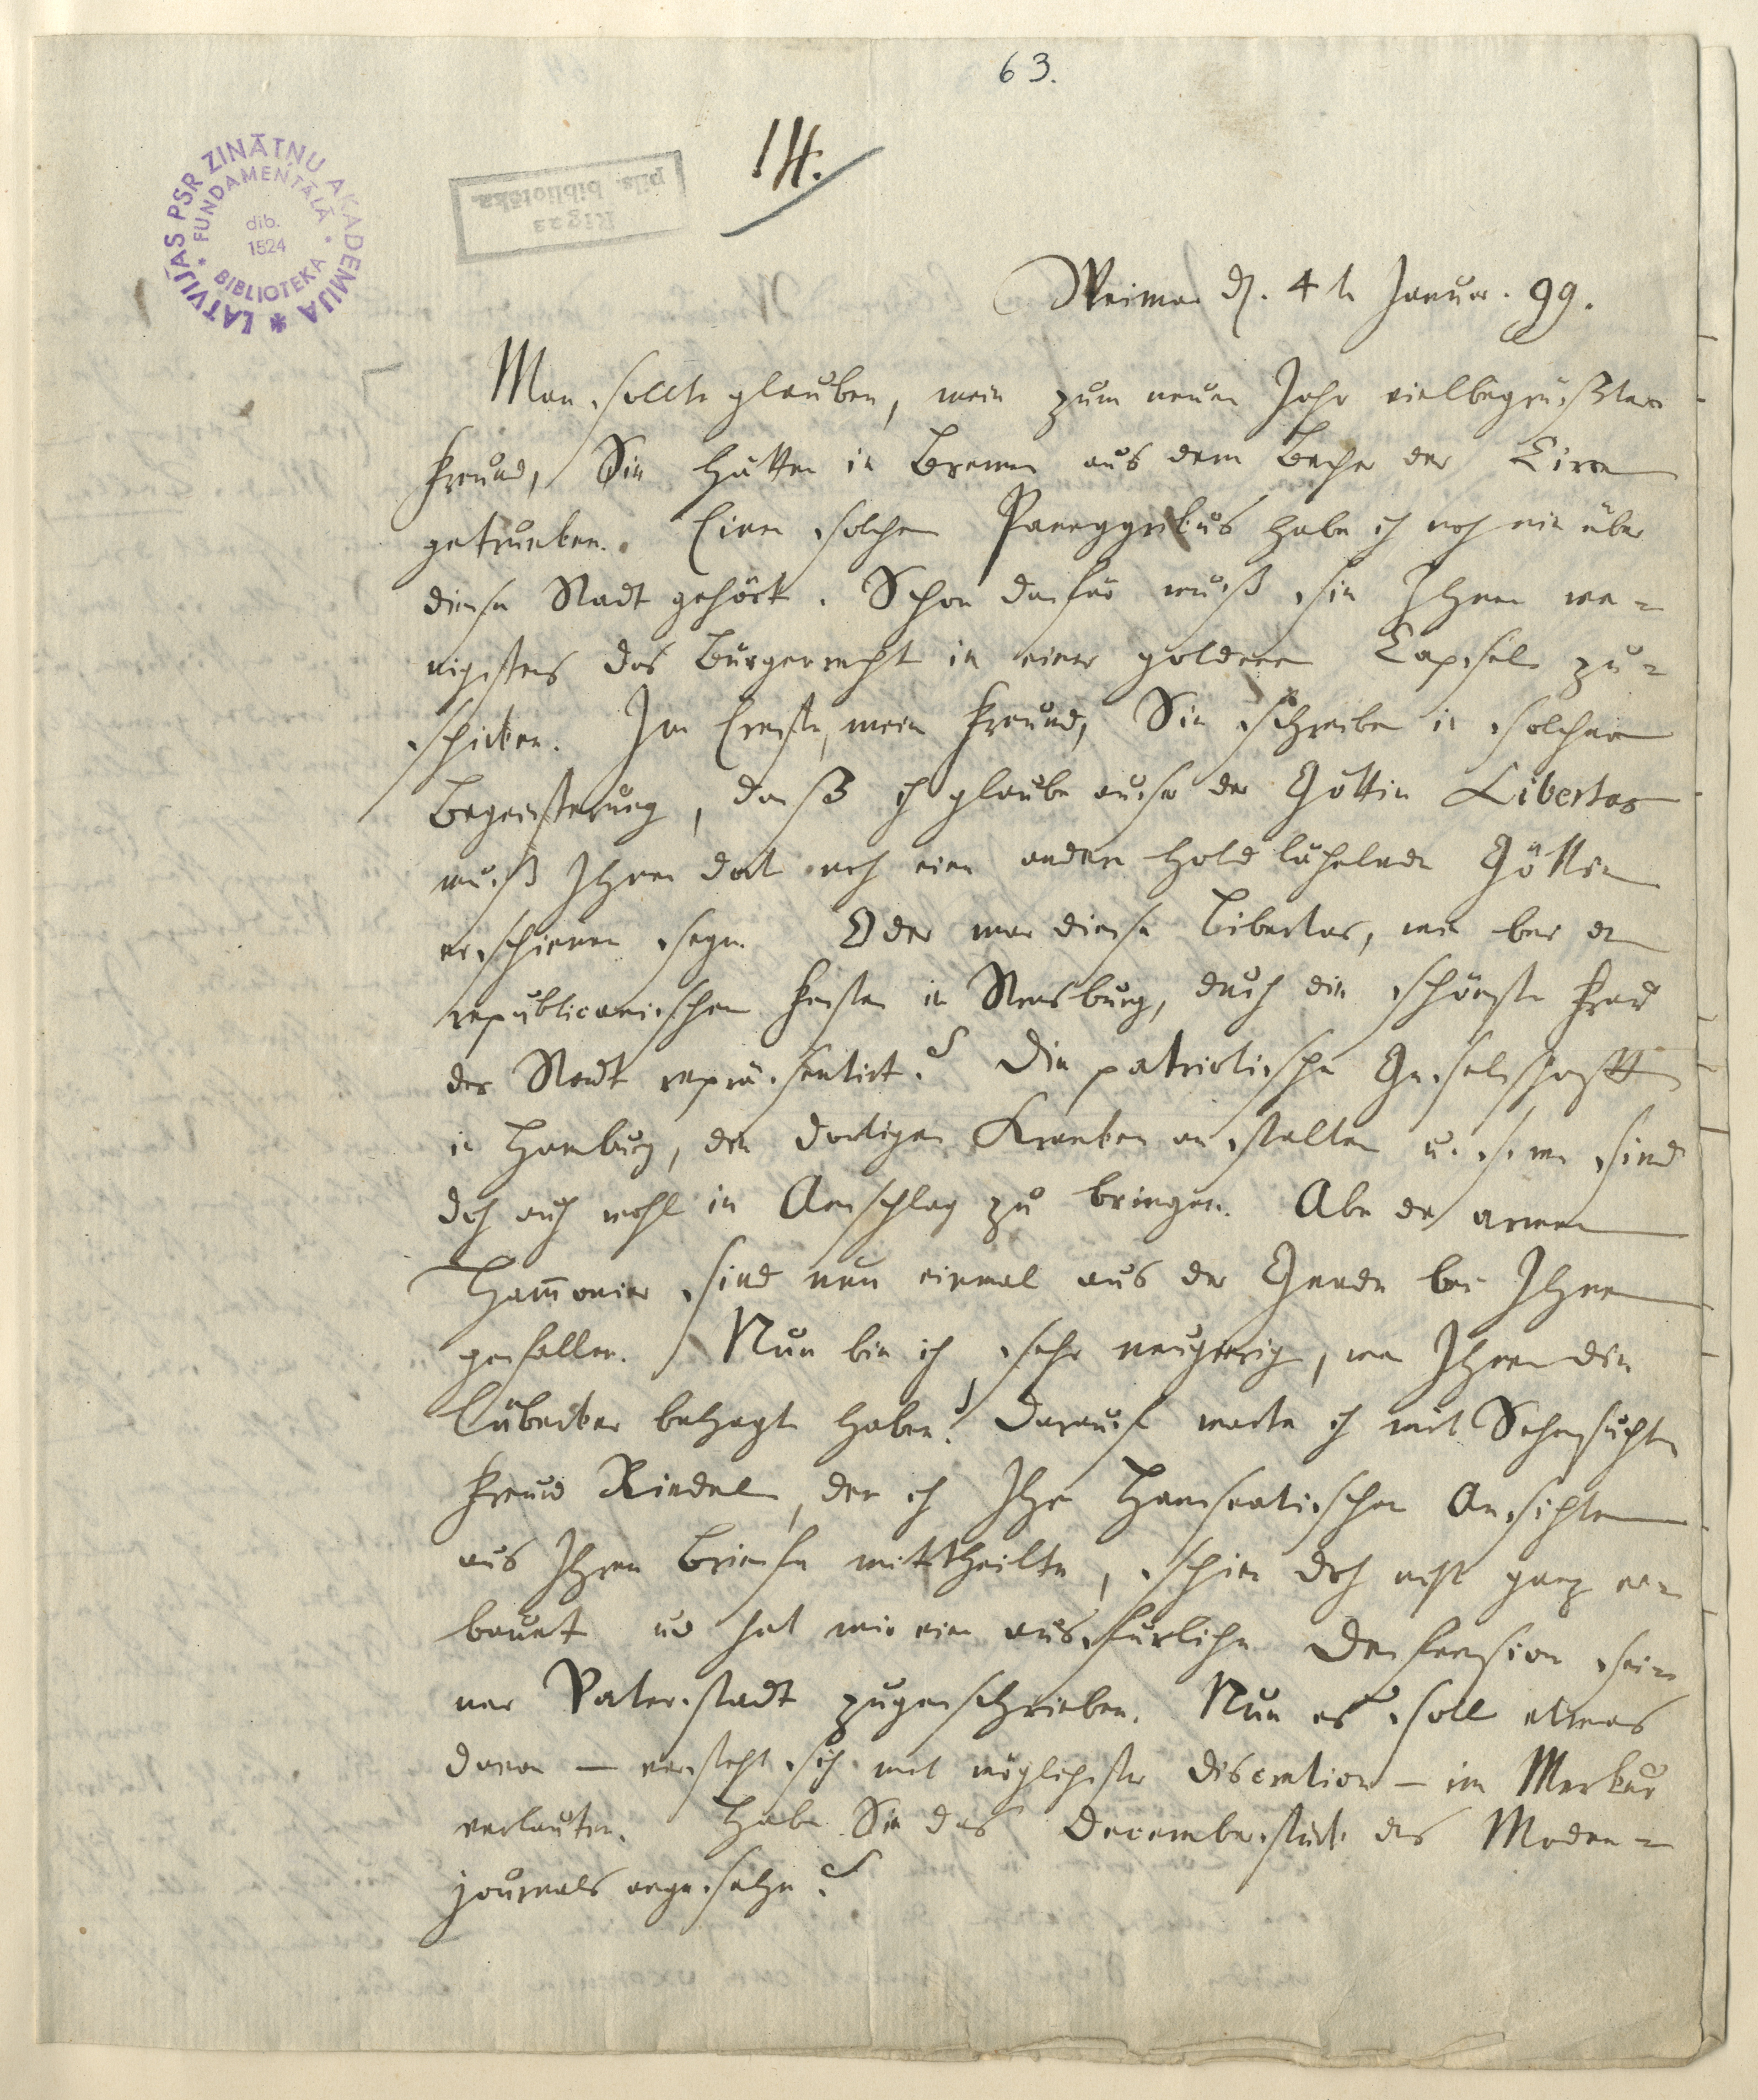 63.
14.
LATVIJAS PSR ZINĀTŅU AKADEMIJA
* FUNDAMENTĀLĀ * BIBLIOTEKA
dib.
1524
Rīgas
pils. bibliotēka
Weimar d. 4 te Januar. 99.
Man sollte glauben, mein zum neuen Jahr vielbegrüßter
Freund, Sie hätten in Bremen aus dem Becher der Circe
getrunken. Einen solchen Paneggrikus habe ich noch nie über
diese Stadt gehört. Schon dafür muß sie Ihnen we-
nigstens das Bürgerrecht in einer goldenen Capsel zu-
schicken. Im Ernste, mein Freund, Sie schreiben in solcher
Begeisterung, daß ich glaube außer der Göttin Libertas
muß Ihnen dort noch eine andere hold lächelnde Göttin
erschienen seyn. Oder war diese Libertas, wie bei den
republicanischen Festen in Strasburg, durch die schönste Frau
der Stadt repräsentirt? Die patriotische Gesellschafft
in Hamburg, die dortigen Krankenanstalten u. s. w. sind
doch auch wohl in Anschlag zu bringen. Aber die armen
Ham̅onier sind nun einmal aus der Gnade bei Ihnen
gefallen. Nun bin ich sehr neugierig, wie Ihnen die
Lübecker behagt haben! Darauf warte ich mit Sehnsucht.
Freund Riedel, dem ich Ihre Hanseatischen Ansichten
aus Ihrem Briefe mittheilte, schien doch nicht ganz er-
bauet und hat mir eine ausfürliche Defension sei-
ner Vaterstadt zugeschrieben. Nun es soll etwas
davon — versteht sich mit möglichster Discretion — im Merkur
verlauten. Haben Sie das Decemberstück des Moden-
journals angesehen?